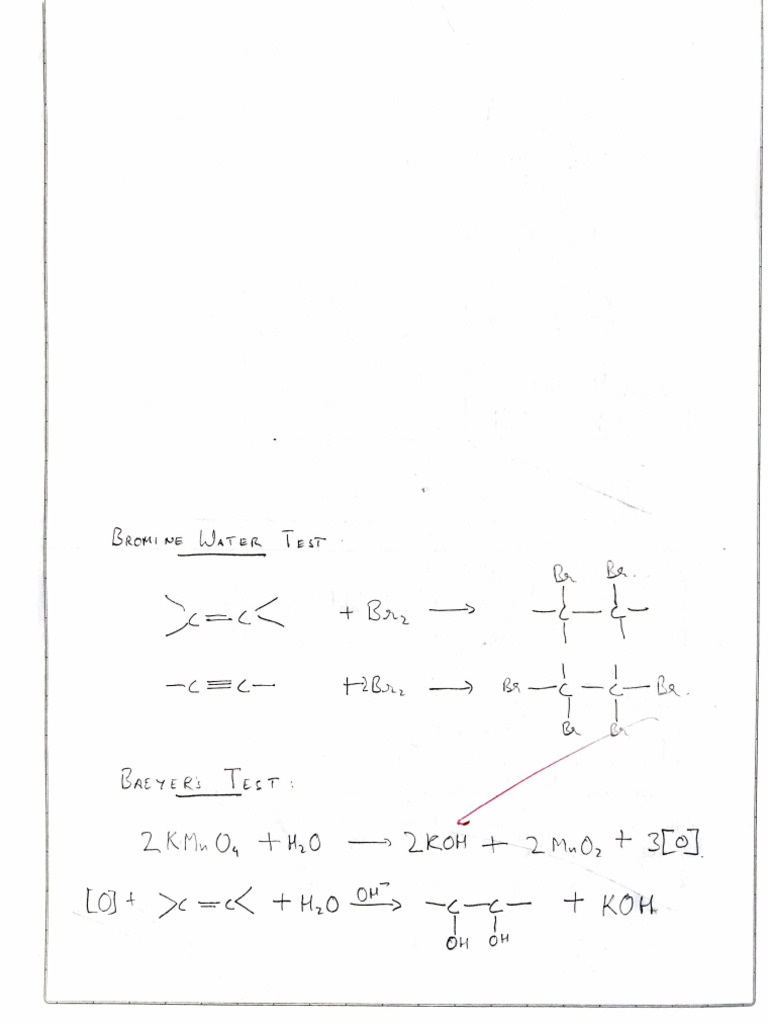 BROMINE WATER TEST
>C=C< + Br₂ → Br Br. -C-C-
-C≡C- +2Br₂ → Br-C-C-Br. Br Br
BAEYER'S TEST:
2KMnO₄ + H₂O → 2KOH + 2MnO₂ + 3[O].
[O] + >C=C< + H₂O OH⁻→ -C-C- OH OH + KOH